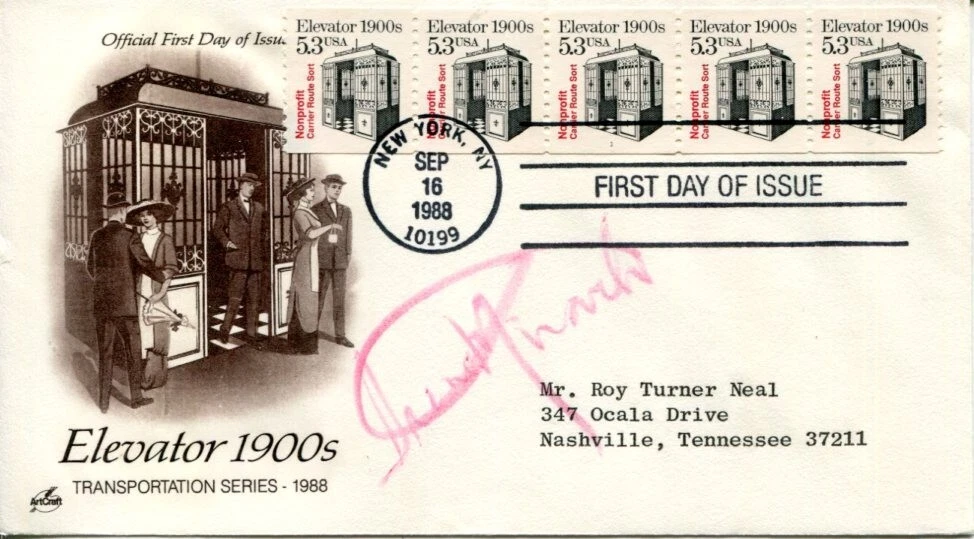 Official First Day of Issu
Elevator 1900s
5.3 USA
Nonprofit
Carrier Route Sort
Elevator 1900s
5.3 USA
Nonprofit
Carrier Route Sort
Elevator 1900s
5.3 USA
Nonprofit
Carrier Route Sort
1
Elevator 1900s
5.3 USA
Nonprofit
Carrier Route Sort
Elevator 1900s
5.3 USA
Nonprofit
Carrier Route Sort
NEW YORK, NY
SEP
16
1988
10199
FIRST DAY OF ISSUE
Mr. Roy Turner Neal
347 Ocala Drive
Nashville, Tennessee 37211
Elevator 1900s
TRANSPORTATION SERIES - 1988
ArtCraft